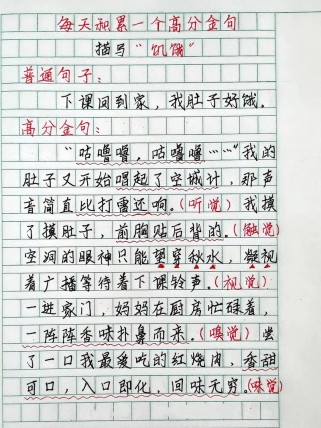 每天积累一个高分金句
描写“饥饿”
普通句子：
下课回到家，我肚子好饿。
高分金句：
“咕噜噜，咕噜噜……”我的
肚子又开始唱起了空城计，那声
音简直比打雷还响。（听觉）我摸
了摸肚子，前胸贴后背的。（触觉）
空洞的眼神只能望穿秋水，凝视
着广播等待着下课铃声。（视觉）
一进家门，妈妈在厨房忙碌着，
一阵阵香味扑鼻而来。（嗅觉）尝
了一口我最爱吃的红烧肉，香甜
可口，入口即化，回味无穷。（味觉）